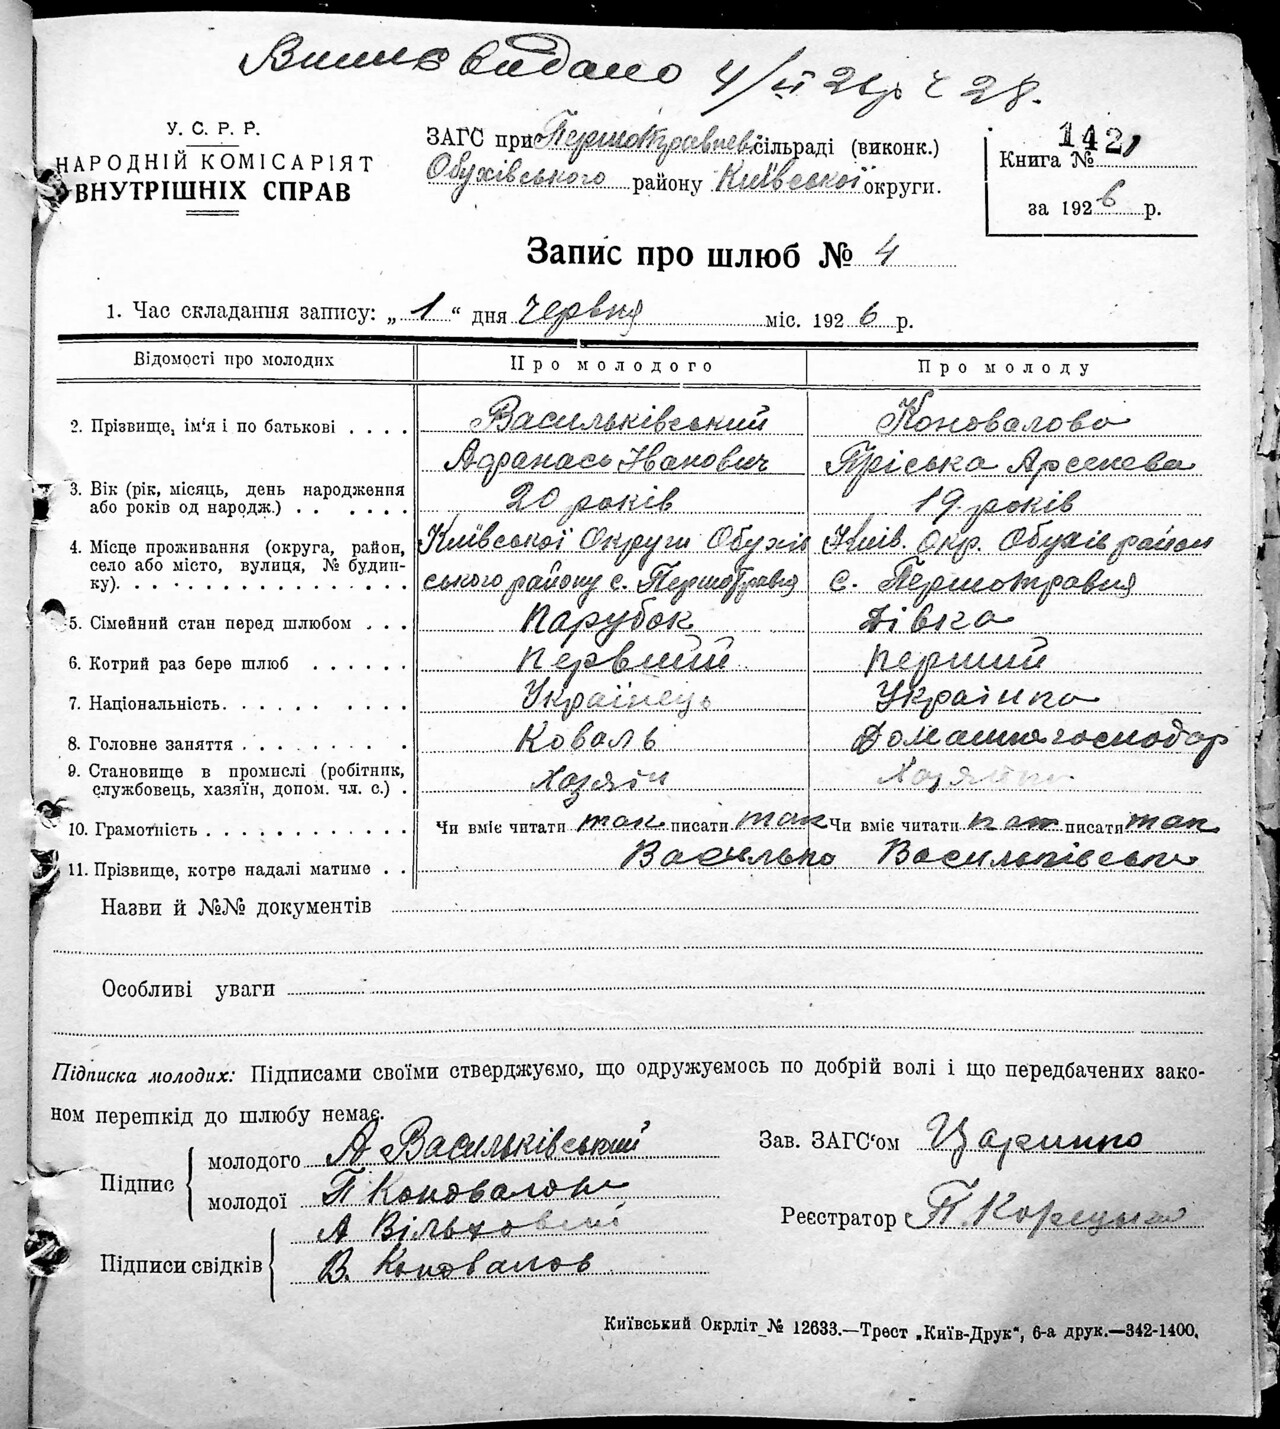 Випис видано 4/VI 26р ч 28.
У. С. Р. Р.
НАРОДНІЙ КОМІСАРІЯТ
ВНУТРІШНІХ СПРАВ
ЗАГС при Першотравнев. сільраді (виконк.)
Обухівського району Київської округи.
Книга № 1421
за 1926 р.
Запис про шлюб № 4
1. Час складання запису: „ 1 “ дня червня міс. 1926 р.
Відомості про молодих Про молодого Про молоду
2. Прізвище, ім‘я і по батькові . . . . Васильківський Коновалова
Афанась Іванович Пріська Арсенева
3. Вік (рік, місяць, день народження або років од народж.) . . . . . . 20 років 19 років
4. Місце проживання (округа, район, Київської Округи Обухів Київ. Окр. Обухів район
село або місто, вулиця, № будин-
ку). . . . . . . . . . . . . . . . ського району с. Першотравня с. Першотравня
5. Сімейний стан перед шлюбом . . . парубок дівка
6. Котрий раз бере шлюб . . . . . . первший перший
7. Національність. . . . . . . . . . . Українець Українка
8. Головне заняття . . . . . . . . . . Коваль Домашнє господар
9. Становище в промислі (робітник,
службовець, хазяїн, допом. чл. с.) . Хазяїн Хазяйка
10. Грамотність . . . . . . . . . . . . . Чи вміє читати так писати так Чи вміє читати так писати так
11. Прізвище, котре надалі матиме . . Васильк Васильківськ
Назви й №№ документів
Особливі уваги
Підписка молодих: Підписами своїми стверджуємо, що одружуємось по добрій волі і що передбачених зако-
ном перешкід до шлюбу немає.
Підпис
молодого А Васильківський
молодої П Коновалов
Підписи свідків
А Вільховий
В. Коновалов
Зав. ЗАГС‘ом
Реєстратор П.
Київський Окрліт № 12633.—Трест „Київ-Друк“, 6-а друк.—342-1400.